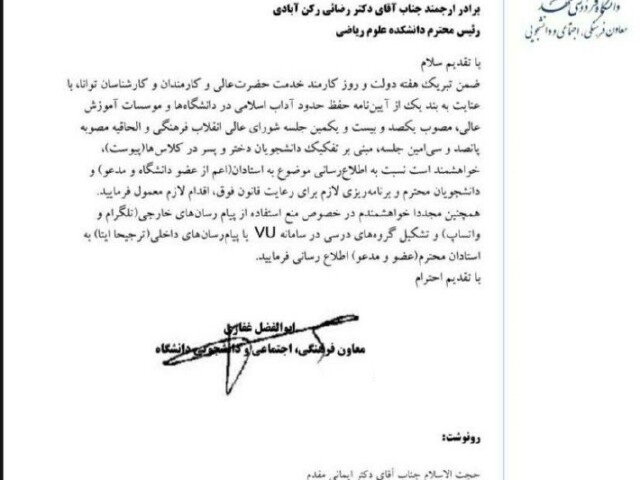 دانشگاه فردوسی مشهد
معاون فرهنگی، اجتماعی و دانشجویی
برادر ارجمند جناب آقای دکتر رضائی رکن آبادی
رئیس محترم دانشکده علوم ریاضی
با تقدیم سلام
ضمن تبریک هفته دولت و روز کارمند خدمت حضرت‌عالی و کارمندان و کارشناسان توانا، با
عنایت به بند یک از آیین‌نامه حفظ حدود آداب اسلامی در دانشگاه‌ها و موسسات آموزش
عالی، مصوب یکصد و بیست و یکمین جلسه شورای عالی انقلاب فرهنگی و الحاقیه مصوبه
پانصد و سی‌امین جلسه، مبنی بر تفکیک دانشجویان دختر و پسر در کلاس‌ها(پیوست)،
خواهشمند است نسبت به اطلاع‌رسانی موضوع به استادان(اعم از عضو دانشگاه و مدعو) و
دانشجویان محترم و برنامه‌ریزی لازم برای رعایت قانون فوق، اقدام لازم معمول فرمایید.
همچنین مجددا خواهشمندم در خصوص منع استفاده از پیام رسان‌های خارجی(تلگرام و
واتساپ) و تشکیل گروه‌های درسی در سامانه VU یا پیام‌رسان‌های داخلی(ترجیحا ایتا) به
استادان محترم(عضو و مدعو) اطلاع رسانی فرمایید.
با تقدیم احترام
ابوالفضل غفاری
معاون فرهنگی، اجتماعی و دانشجویی دانشگاه
رونوشت:
حجت الاسلام جناب آقای دکتر ایمانی مقدم